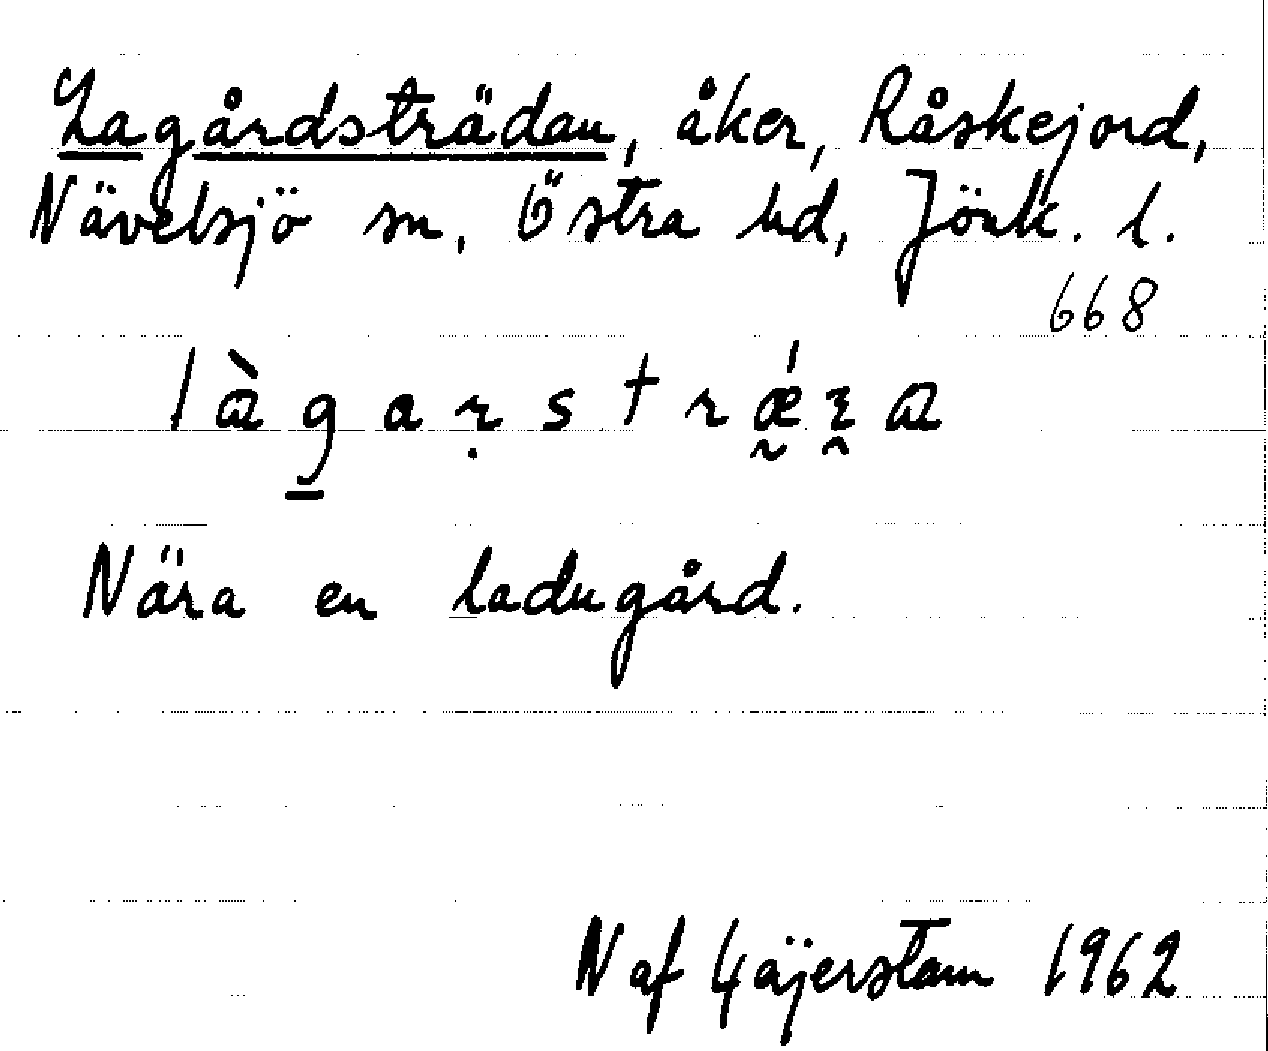 Lagårdsträdan, åker, Råskejord,
Nävelsjö sn, Östra hd, Jönk. l.
668
l à g a ṛ s t r ǽ r a
Nära en ladugård.
N af Gäijerstam 1962